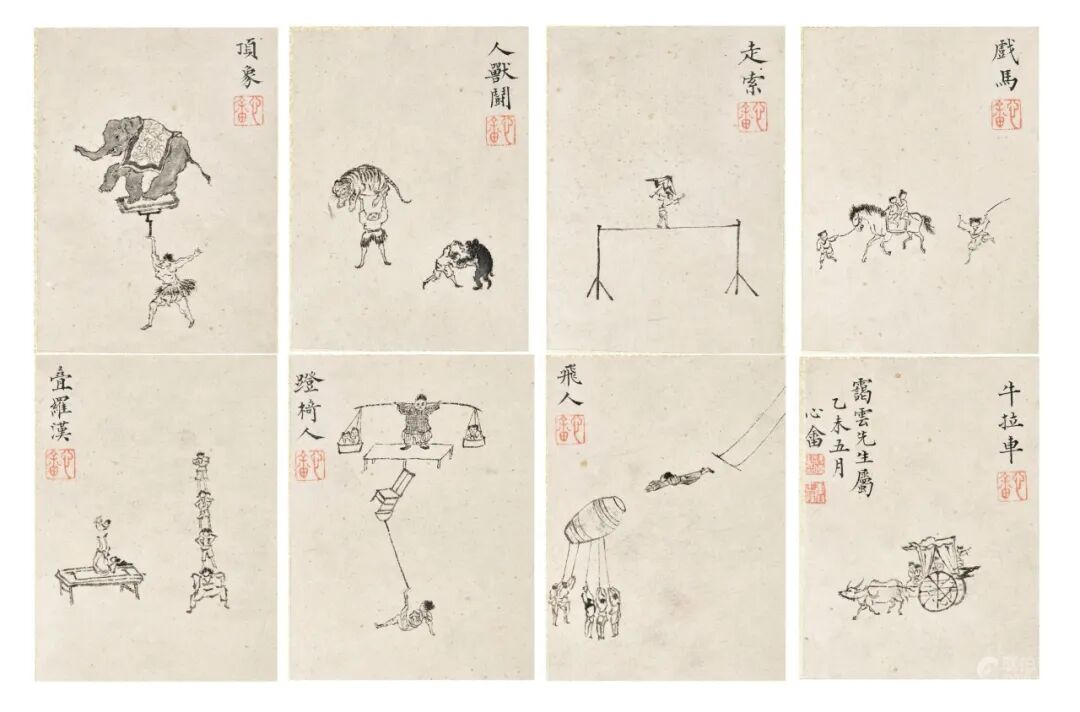 頂象
人獸鬪
走索
戲馬
疊羅漢
蹬椅人
飛人
牛拉車
靄雲先生屬
乙未五月
心畬